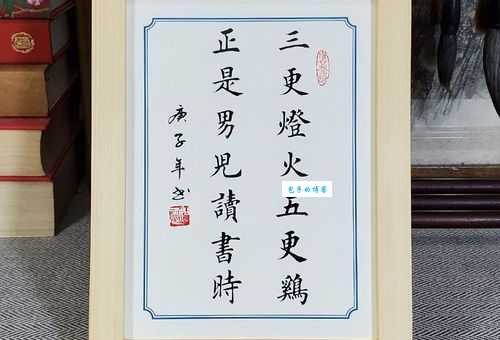 三更燈火五更鷄
正是男児讀書時
庚子年书
包子的博客